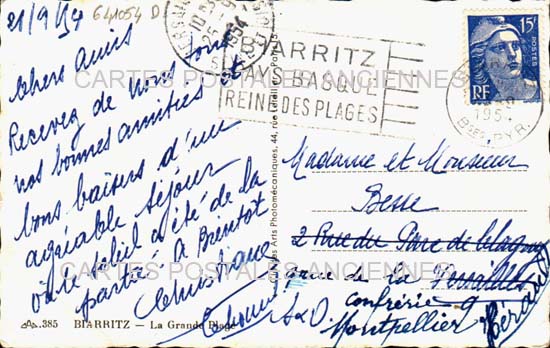 21/9/54
641054 D
Chers Amis
Recevez de nous tous
nos bonnes amitiés et
bons baisers d'un
agréable séjour
où le soleil a été de la
partie à Bientôt
Christiane
BIARRITZ
PAYS BASQUE
REINE DES PLAGES
1954
15F
RF
1954
Bses PYR.
CARTES POSTALES ANCIENNES
Arts Photomécaniques, 44, rue
Madame et Monsieur
Besse
2 Rue du Parc de
rue de la
confrérie 9
Montpellier
Hérault
CARTES POSTALES ANCIENNES
385 BIARRITZ - La Grande Plage